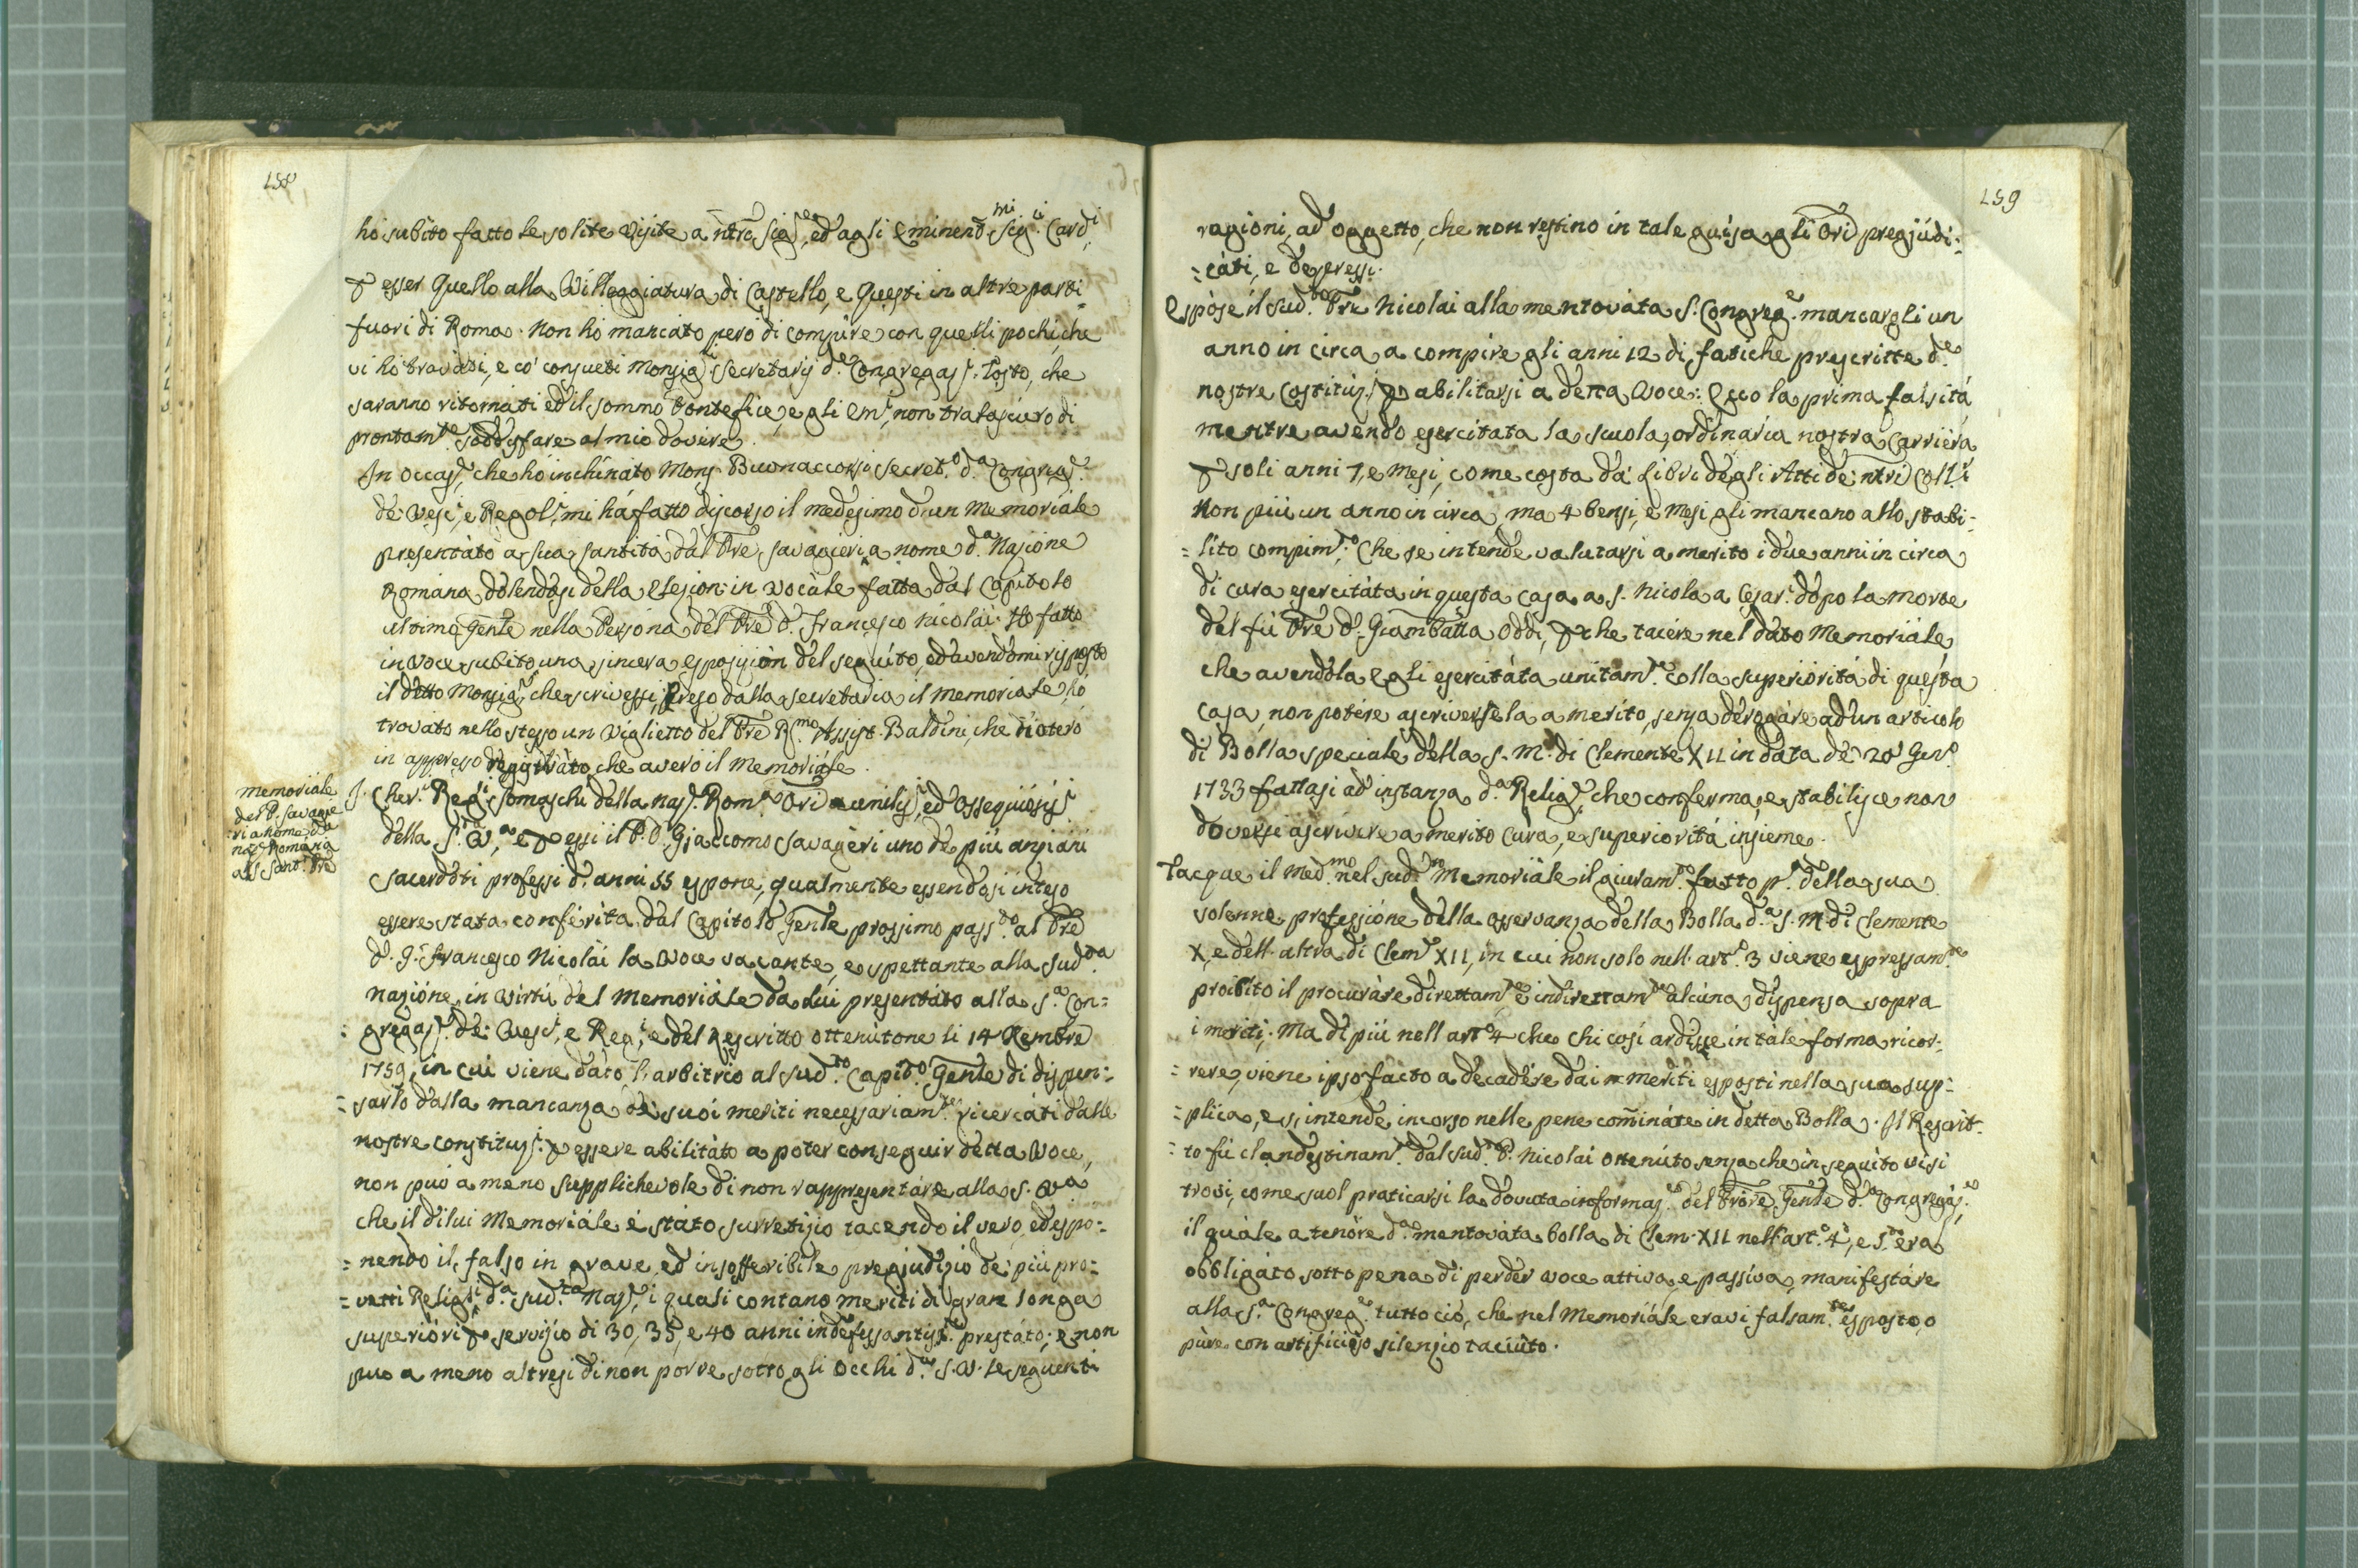 158
ho subito fatto le solite visite a ntro Sig.re, ed agli Eminen.mi Sig.ri Card.i
p esser Quello alla Villeggiatura di Castello, e Questi in altre parti
fuori di Roma. Non ho mancato però di compire con quelli pochi, che
vi ho trovati, e co' consueti Monsig.ri Secretarj d.e Congregaz.i. Tosto, che
saranno ritornati ed il sommo Pontefice, e gli Em.i, non tralascierò di
prontam.te soddisfare al mio dovere.
In occas.e, che ho inchinato Mons. Buonaccorsi Secret.o d.a Congreg.e
de' Vesc.i, e Regol.i, mi há fatto discorso il medesimo d'un Memoriale
presentáto a sua santità dal Pre Savageri a nome d.a Nazione
Romana dolendosi della elezion in vocále fatta dal Capitolo
ultimo Genle nella Persona del Pre D. Francesco Nicolai. Ho fatto
in voce subito una sincera esposizion del seguíto, ed avendomi risposto
il detto Monsig.re, che scrivessi, preso dalla secretaria il memoriale, hò
trovato nello stesso un viglietto del Pre R.mo Assist. Baldini, che noterò
in appresso registrato che averò il memoriále.
memoriále
del P. Savage
ri a nome d.a
naz.e Romana
al S. Sant.o Pre
I Cher.ci Reg.i Somaschi della naz.e Rom.a Ori umilis.i, ed ossequiosis.i
della S.tà V.a, e p essi il P. D. Giacomo Savagèri uno de' più anziani
Sacerdoti professi d. anni 55 espone, qualmente essendosi inteso
essere stata conférita dal Capitolo Genle prossimo pass.to al Pre
D. G. Francesco Nicolai la voce vacante, e spettante alla sud.ta
nazióne, in virtù del memoriále da lui presentáto alla S.a Con=
= gregaz.e de' Vesc.i, e Reg.i, e del Rescritto ottenútone li 14 Xembre
1759, in cui viene dáto l'arbitrio al sud.to Capit.o Genle di dispen=
= sarlo dalla mancanza de' suoi meriti necessariam.te ricercáti dalle
nostre constituz.i p essere abilitáto a poter conseguir detta voce,
non puó a meno Supplichevole di non rappresentáre alla S. V.a
che il di lui Memoriále é státo surretizio tacendo il vero, ed espo=
= nendo il falso in grave, ed insofferibile pregiudizio de' più pro=
= vetti Religi.si d.a sud.ta Naz.e, i quali contano meriti di gran longa
superióri p servizio di 30, 35, e 40 anni indefessantis.te prestáto; e non
puo a meno altresi di non porre sotto gli occhi d.a S. V. le seguenti
159
ragioni, ad oggetto, che non restino in tale guisa gli Ori pregiúdi=
= cáti, e depressi.
Espòse il sud.to Pre Nicolai alla mentováta S. Congreg.e mancargli un
anno in circa a compire gli anni 12 di fatiche prescritte d.e
nostre Costitúz.i p abilitarsi a detta Voce: Ecco la prima falsitá
mentre avendo esercitata la scuola, ordinaria nostra Carriéra
p soli anni 7, e mesi, come costa da' Libri degli Atti de' ntri Coll.i
Non più un anno in circa, ma 4 bensi, e mesi gli mancano allo stabi=
= lito compim.to; Che se intende valutarsi a merito i due anni in circa
di cura esercitáta in questa casa a S. Nicola a Cesar.i dopo la morte
del fù Pre D. Giambatta Oddi, p che tacére nel dato Memoriále
che avendola egli esercitáta unitam.te colla superiórità di questa
casa, non potére ascriversela a merito, senza derogáre ad un articolo
di Bolla speciale della S. M. di Clemente XII in data de' 20 Gen.o
1733 fattasi ad instanza d.a Relig.e, che conferma, e stabilisce non
doversi ascrivere a merito Cura, e superiorità insieme.
Tacque il Med.mo nel sud.to Memoriále il giuram.to fatto p.a della sua
solenne professióne della osservanza della Bolla d.a S. M. di Clemente
X, e dell'altra di Clem.e XII, in cui non solo nell'art.o 3 viene espressam.te
proibìto il procuráre direttam.te e indirettam.te alcúna dispensa sopra
i meriti; Ma di più nell'art.o 4 che chi così ardisse in tále forma ricor=
= rere, viene ipso facto a decadére dai meriti esposti nella sua sup=
= plica, e s'intende incorso nelle pene comináte in detta Bolla. Il Rescrit=
= to fù clandestinam.te dal sud.to P. Nicolai ottenúto senza che in seguito vi si
trovi, come suol praticarsi la dovuta informaz.e del Prore Genle d.a Congregáz.e,
il quále a tenóre d.a mentováta bolla di Clem. XII nell'art.o 4, e 5.to era
obbligáto sotto pena di perder voce attiva, e passíva, manifestáre
alla S.a Congreg.e tutto ció, che nel Memoriále eravi falsam.te esposto, o
pure con artificióso silenzio taciúto.